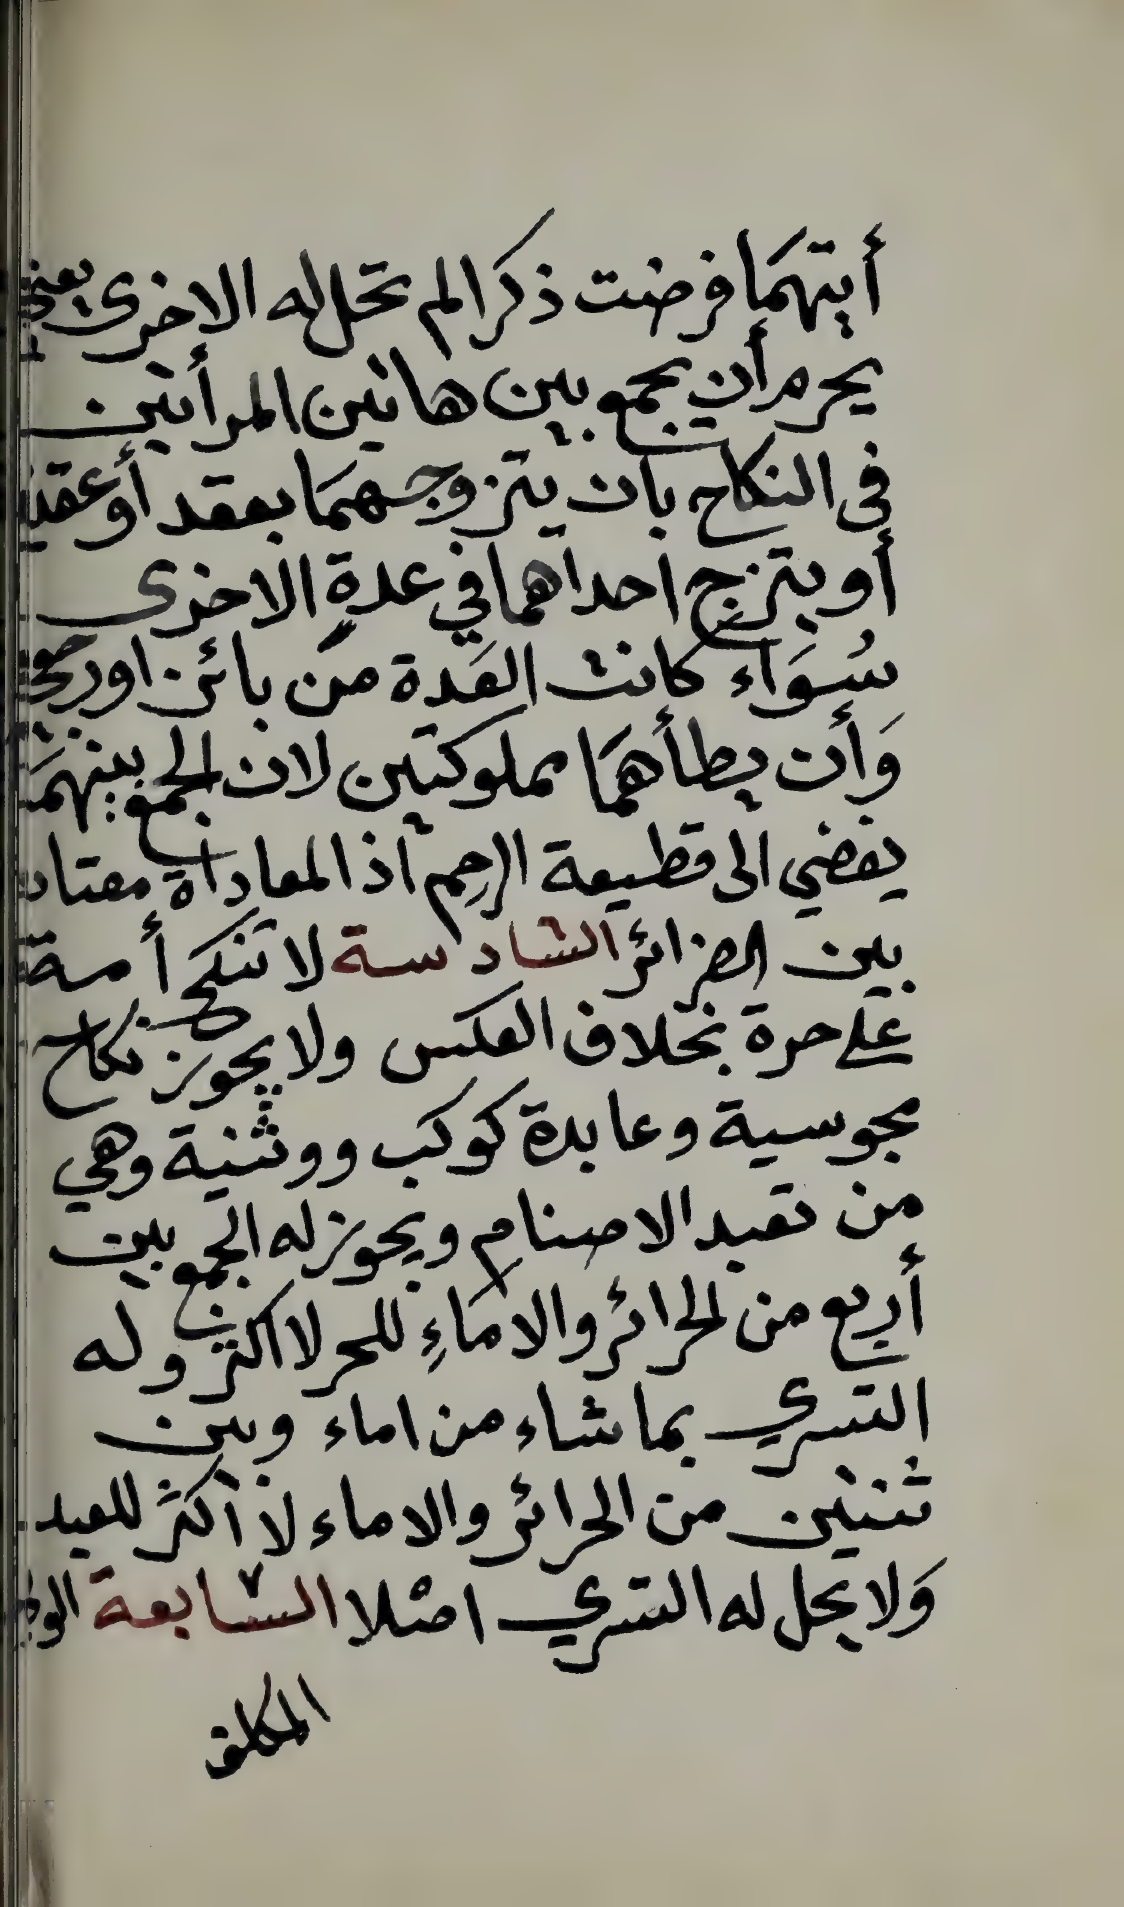 أيتهما فرضت ذكرا لم تحل له الاخرى يعني
يحرم أن يجمع بين هاتين المرأتين
في النكاح بان يتزوجهما بعقد أو عقدين
أو يتزوج احداهما في عدة الاخرى
سواء كانت العدة من بائن او رجعي
وأن يطأهما بملوكتين لان الجمع بينهما
يفضي الى قطيعة الرحم اذ المعاداة معتادة
بين الضرائر السادسة لا تنكح أمة
على حرة بخلاف العكس ولا يجوز نكاح
مجوسية وعابدة كوكب ووثنية وهي
من تعبد الاصنام ويجوز له الجمع بين
أربع من الحرائر والاماء للحر لا اكثر وله
التسري بما شاء من اماء وبين
ثنتين من الحرائر والاماء لا أكثر للعبد
ولا يحل له التسري اصلا السابعة
المكلف